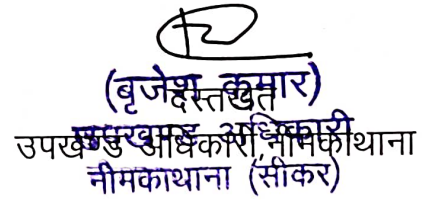 (बृजेश कुमार)
दस्तखत
उपखण्ड अधिकारी
उपखण्ड अधिकारी,नीमकाथाना
नीमकाथाना (सीकर)